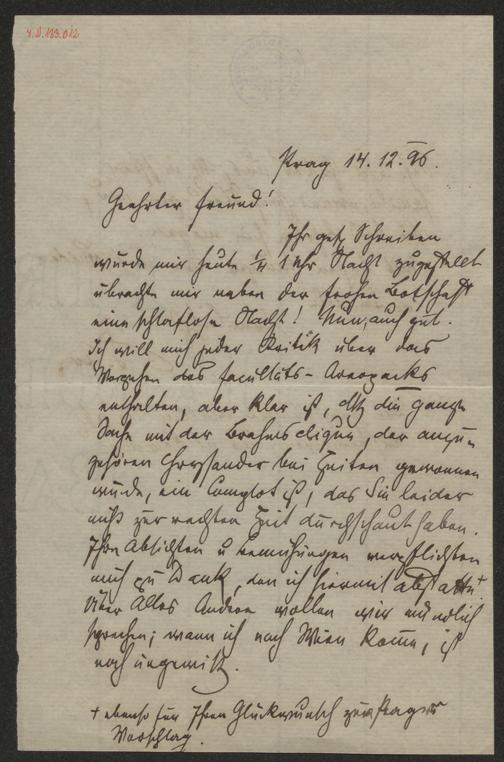 Prag 14.12.96.
Geehrter Freund!
Ihr gesch. Schreiben
wurde mir heute ¼ 1 Uhr Nacht zugestellt
u brachte mir neben der frohen Botschaft
eine schlaflose Nacht! Nun, auch gut.
Ich will mich jeder Kritik über das
Vorgehen des Facultäts-Areopags
enthalten, aber klar ist, daß die ganze
Sache mit der Brahmsclique, der anzu=
gehören Chrysander bei Zeiten gewonnen
wurde, ein Complot ist, das Sie leider
nicht zur rechten Zeit durchschaut haben.
Ihre Absichten u Bemühungen verpflichten
mich zu Dank, den ich hiermit abstatte +
Über Alles Andere wollen wir mündlich
sprechen; wann ich nach Wien komme, ist
noch ungewiß.
+ ebenso für Ihren Glückwunsch zum Prager
Vorschlag.